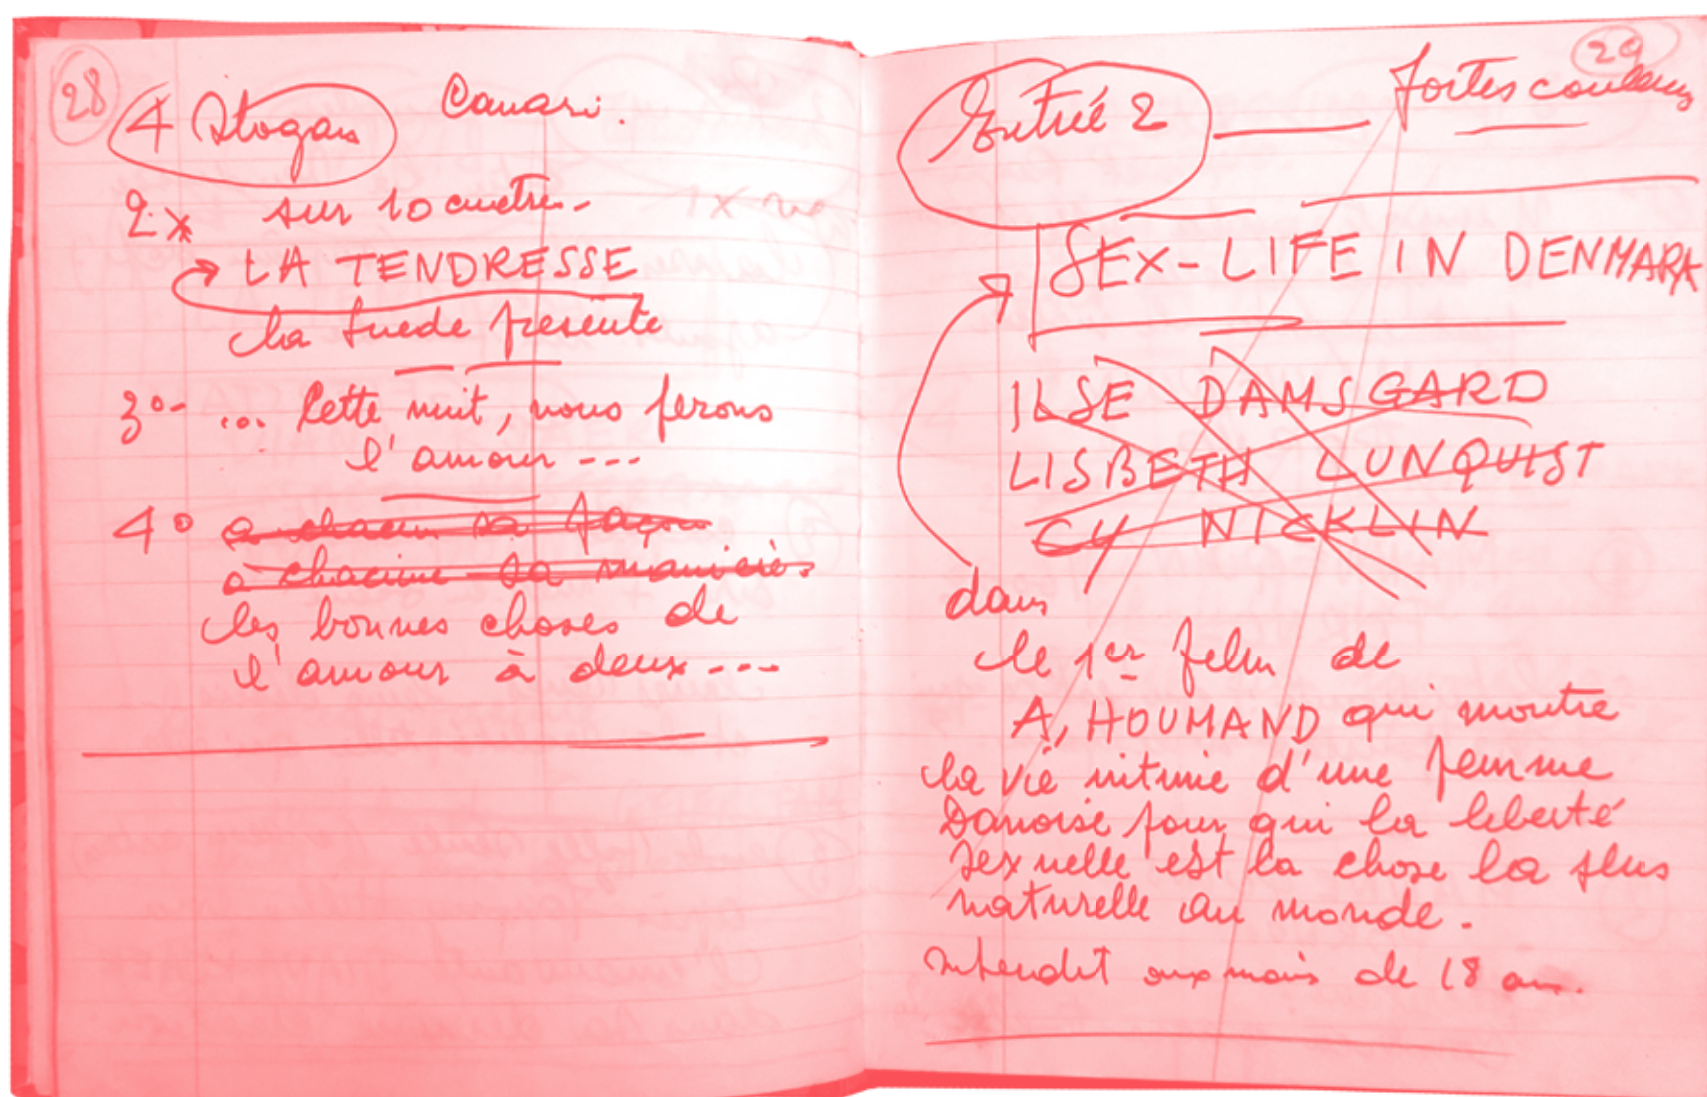 28
4 Slogans Canari.
2x sur 10 mètres-
LA TENDRESSE
la Suède présente
3°- ... Cette nuit, nous ferons
l'amour ---
4° a chacun sa façon
à chacune sa manière.
les bonnes choses de
l'amour à deux ---
29
Entrée 2 fortes couleurs
SEX-LIFE IN DENMARK
ILSE DAMSGARD
LISBETH LUNQUIST
CY NICKLIN
dans
le 1er film de
A, HOUMAND qui montre
la vie intime d'une femme
Danoise pour qui la liberté
sexuelle est la chose la plus
naturelle au monde.
interdit aux moins de 18 ans.